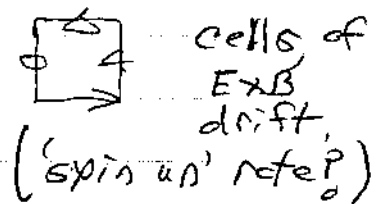 cells of
ExB
drift
('spin up' rate?)